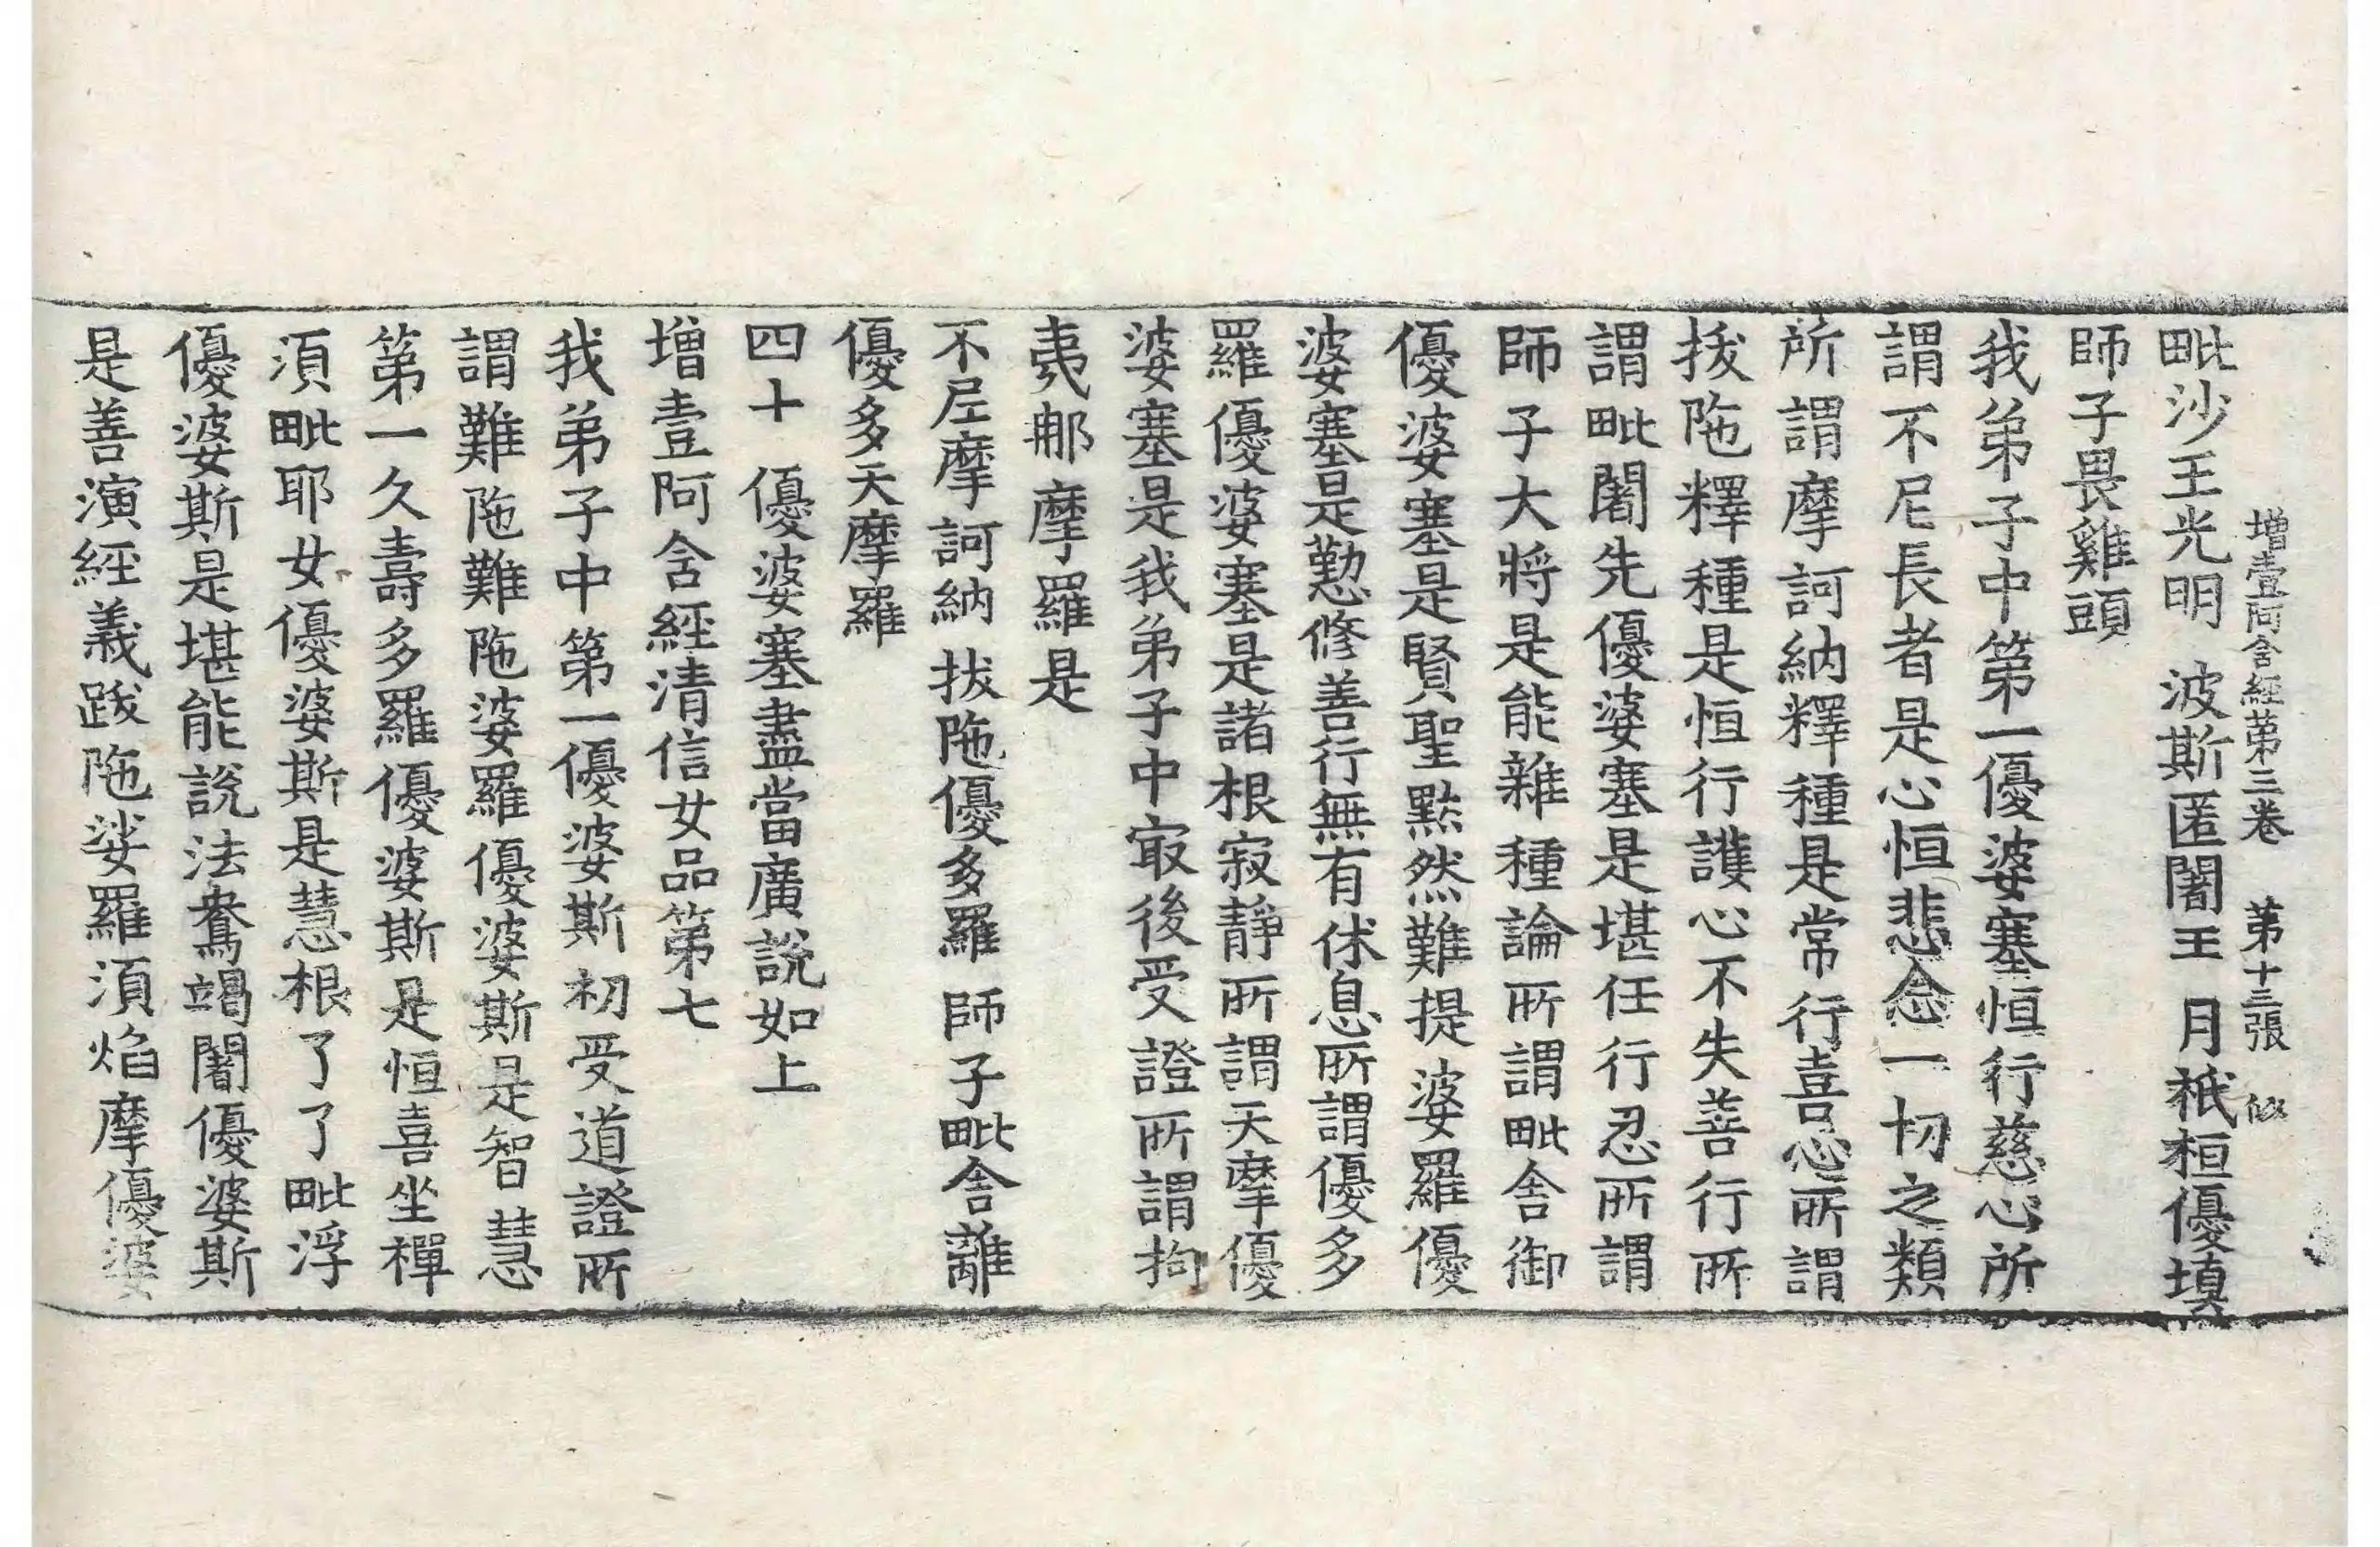 增壹阿含經第三卷　第十三張　似
毗沙王光明　波斯匿闍王　月祇桓優塡
師子畏雞頭
我弟子中第一優婆塞恒行慈心所
謂不尼長者是心恒悲念一切之類
所謂摩訶納釋種是常行喜心所謂
拔陁釋種是恒行護心不失善行所
謂毗闍先優婆塞是堪任行忍所謂
師子大將是能雜種論所謂毗舍御
優婆塞是賢聖黙然難提婆羅優
婆塞是勤修善行無有休息所謂優多
羅優婆塞是諸根寂靜所謂天摩優
婆塞是我弟子中㝡後受證所謂拘
夷那摩羅是
不尼摩訶納　拔陁優多羅　師子毗舍離
優多天摩羅
四十　優婆塞盡當廣說如上
增壹阿含經清信女品第七
我弟子中第一優婆斯初受道證所
謂難陁難陁婆羅優婆斯是智慧
第一久壽多羅優婆斯是恒喜坐禪
須毗耶女優婆斯是慧根了了毗浮
優婆斯是堪能說法鴦竭闍優婆斯
是善演經義跋陁娑羅須焰摩優婆